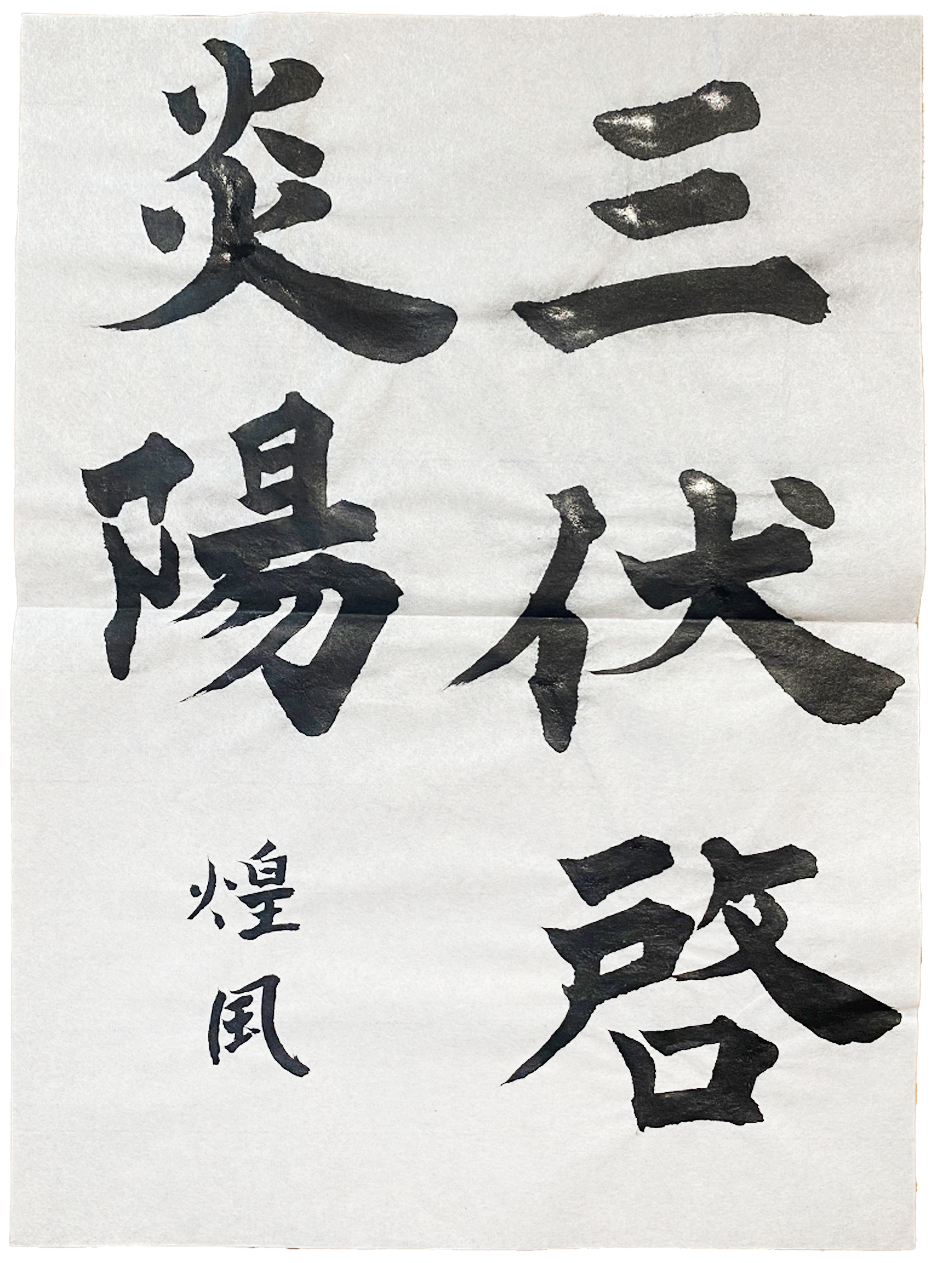 三伏啓
炎陽
煌風